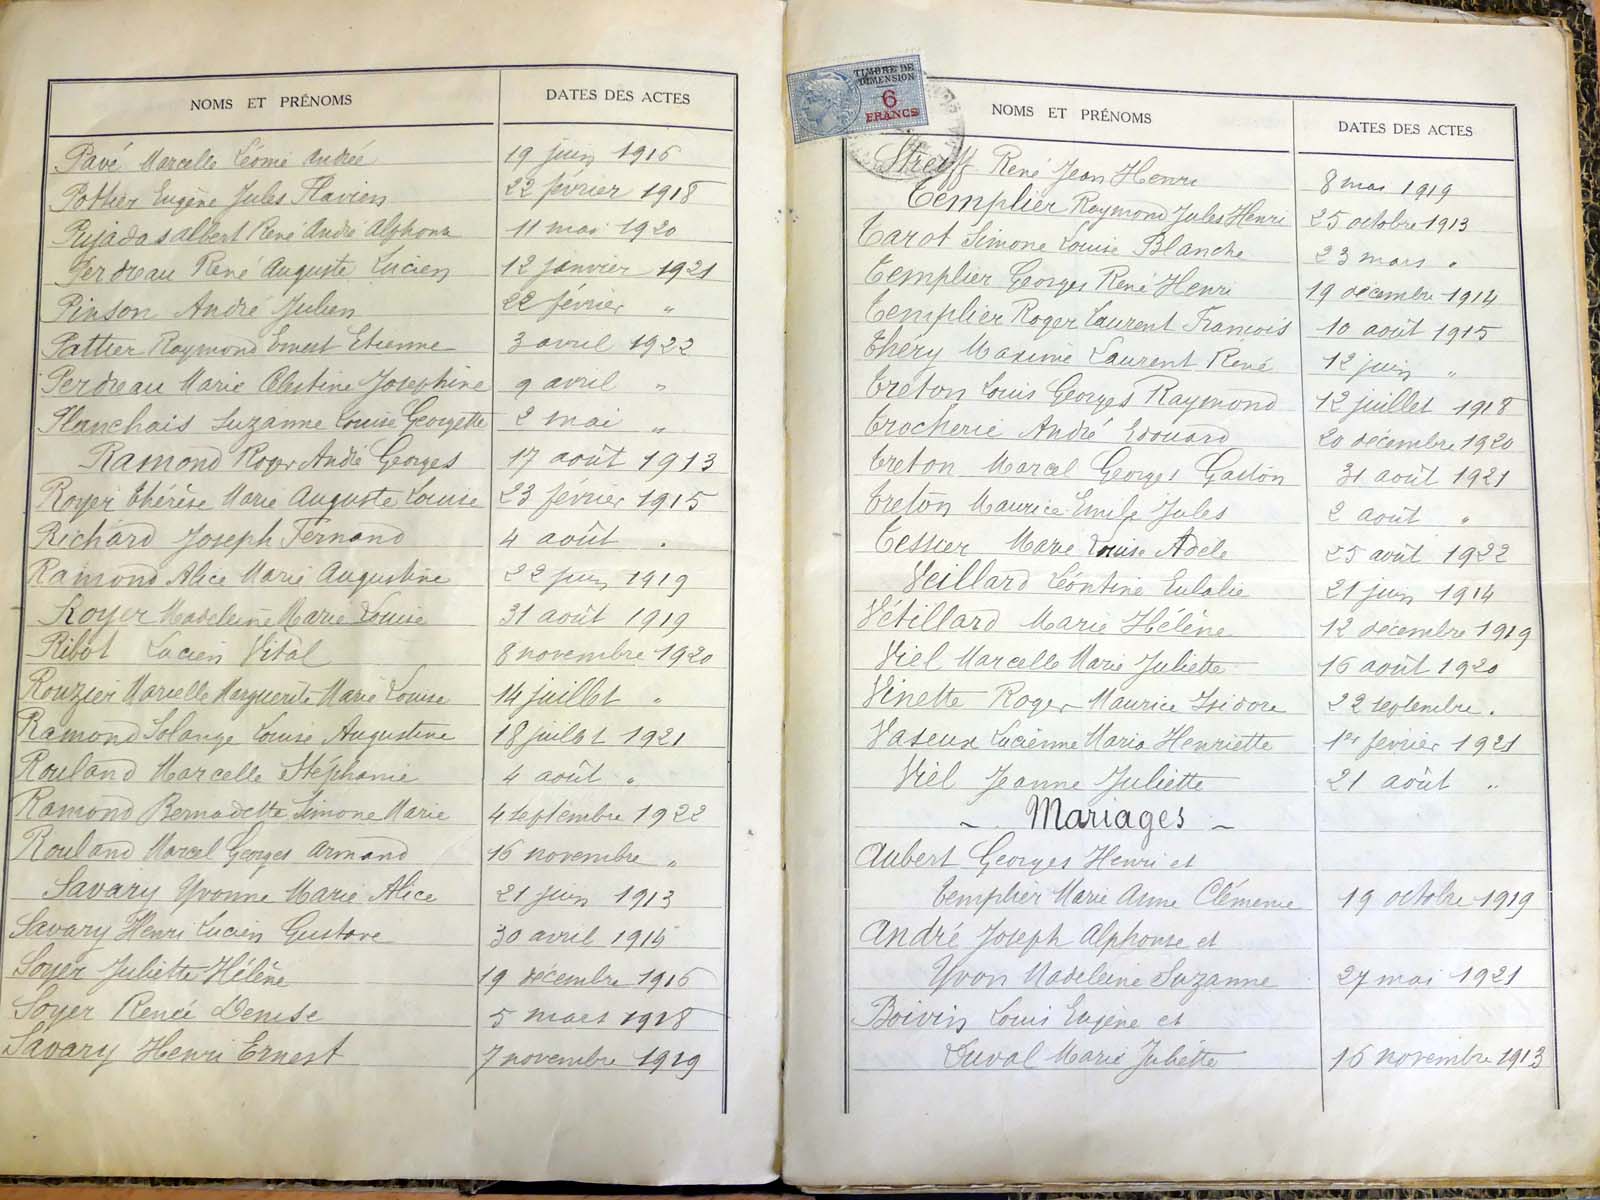 NOMS ET PRÉNOMS DATES DES ACTES
Pavé Marcelle Léonie Andrée 19 juin 1916
Pottier Eugène Jules Flavien 22 février 1918
Pujadas albert René André Alphonse 11 mai 1920
Perdreau René Auguste Lucien 12 janvier 1921
Pinson André Julien 22 février "
Pattier Raymond Ernest Etienne 3 avril 1922
Perdreau Marie Célestine Joséphine 9 avril "
Planchais Suzanne Louise Georgette 2 mai "
Ramond Roger André Georges 17 août 1913
Royer Thérèse Marie Auguste Louise 23 février 1915
Richard Joseph Fernand 4 août "
Ramond Alice Marie Augustine 22 juin 1919
Royer Madeleine Marie Louise 31 août 1919
Ribot Lucien Vital 8 novembre 1920
Rouzier Marcelle Marguerite Marie Louise 14 juillet "
Ramond Solange Louise Augustine 18 juillet 1921
Rouland Marcelle Stéphanie 4 août "
Ramond Bernadette Simone Marie 4 septembre 1922
Rouland Marcel Georges Armand 16 novembre "
Savary Yvonne Marie Alice 21 juin 1913
Savary Henri Lucien Gustave 30 avril 1914
Soyer Juliette Hélène 19 décembre 1916
Soyer Renée Denise 5 mars 1918
Savary Henri Ernest 7 novembre 1919
TIMBRE DE
DIMENSION
6
FRANCS
NOMS ET PRÉNOMS DATES DES ACTES
Streiff René Jean Henri 8 mai 1919
Templier Raymond Jules Henri 25 octobre 1913
Tarot Simone Louise Blanche 23 mars "
Templier Georges René Henri 19 décembre 1914
Templier Roger Laurent François 10 août 1915
Théry Maxime Laurent René 12 juin "
Treton Louis Georges Raymond 12 juillet 1918
Trocherie André Edouard 20 décembre 1920
Treton Marcel Georges Gaston 31 août 1921
Treton Maurice Emile Jules 2 août "
Tessier Marie Louise Adèle 25 août 1922
Veillard Léontine Eulalie 21 juin 1914
Vétillard Marie Hélène 12 décembre 1919
Viel Marcelle Marie Juliette 16 août 1920
Vinette Roger Maurice Isidore 22 septembre "
Vaseux Lucienne Maria Henriette 1er février 1921
Viel Jeanne Juliette 21 août "
- Mariages -
Aubert Georges Henri et
Templier Marie Anne Clémence 19 octobre 1919
André Joseph Alphonse et
Yvon Madeleine Suzanne 27 mai 1921
Boivin Louis Eugène et
Duval Marie Juliette 16 novembre 1913